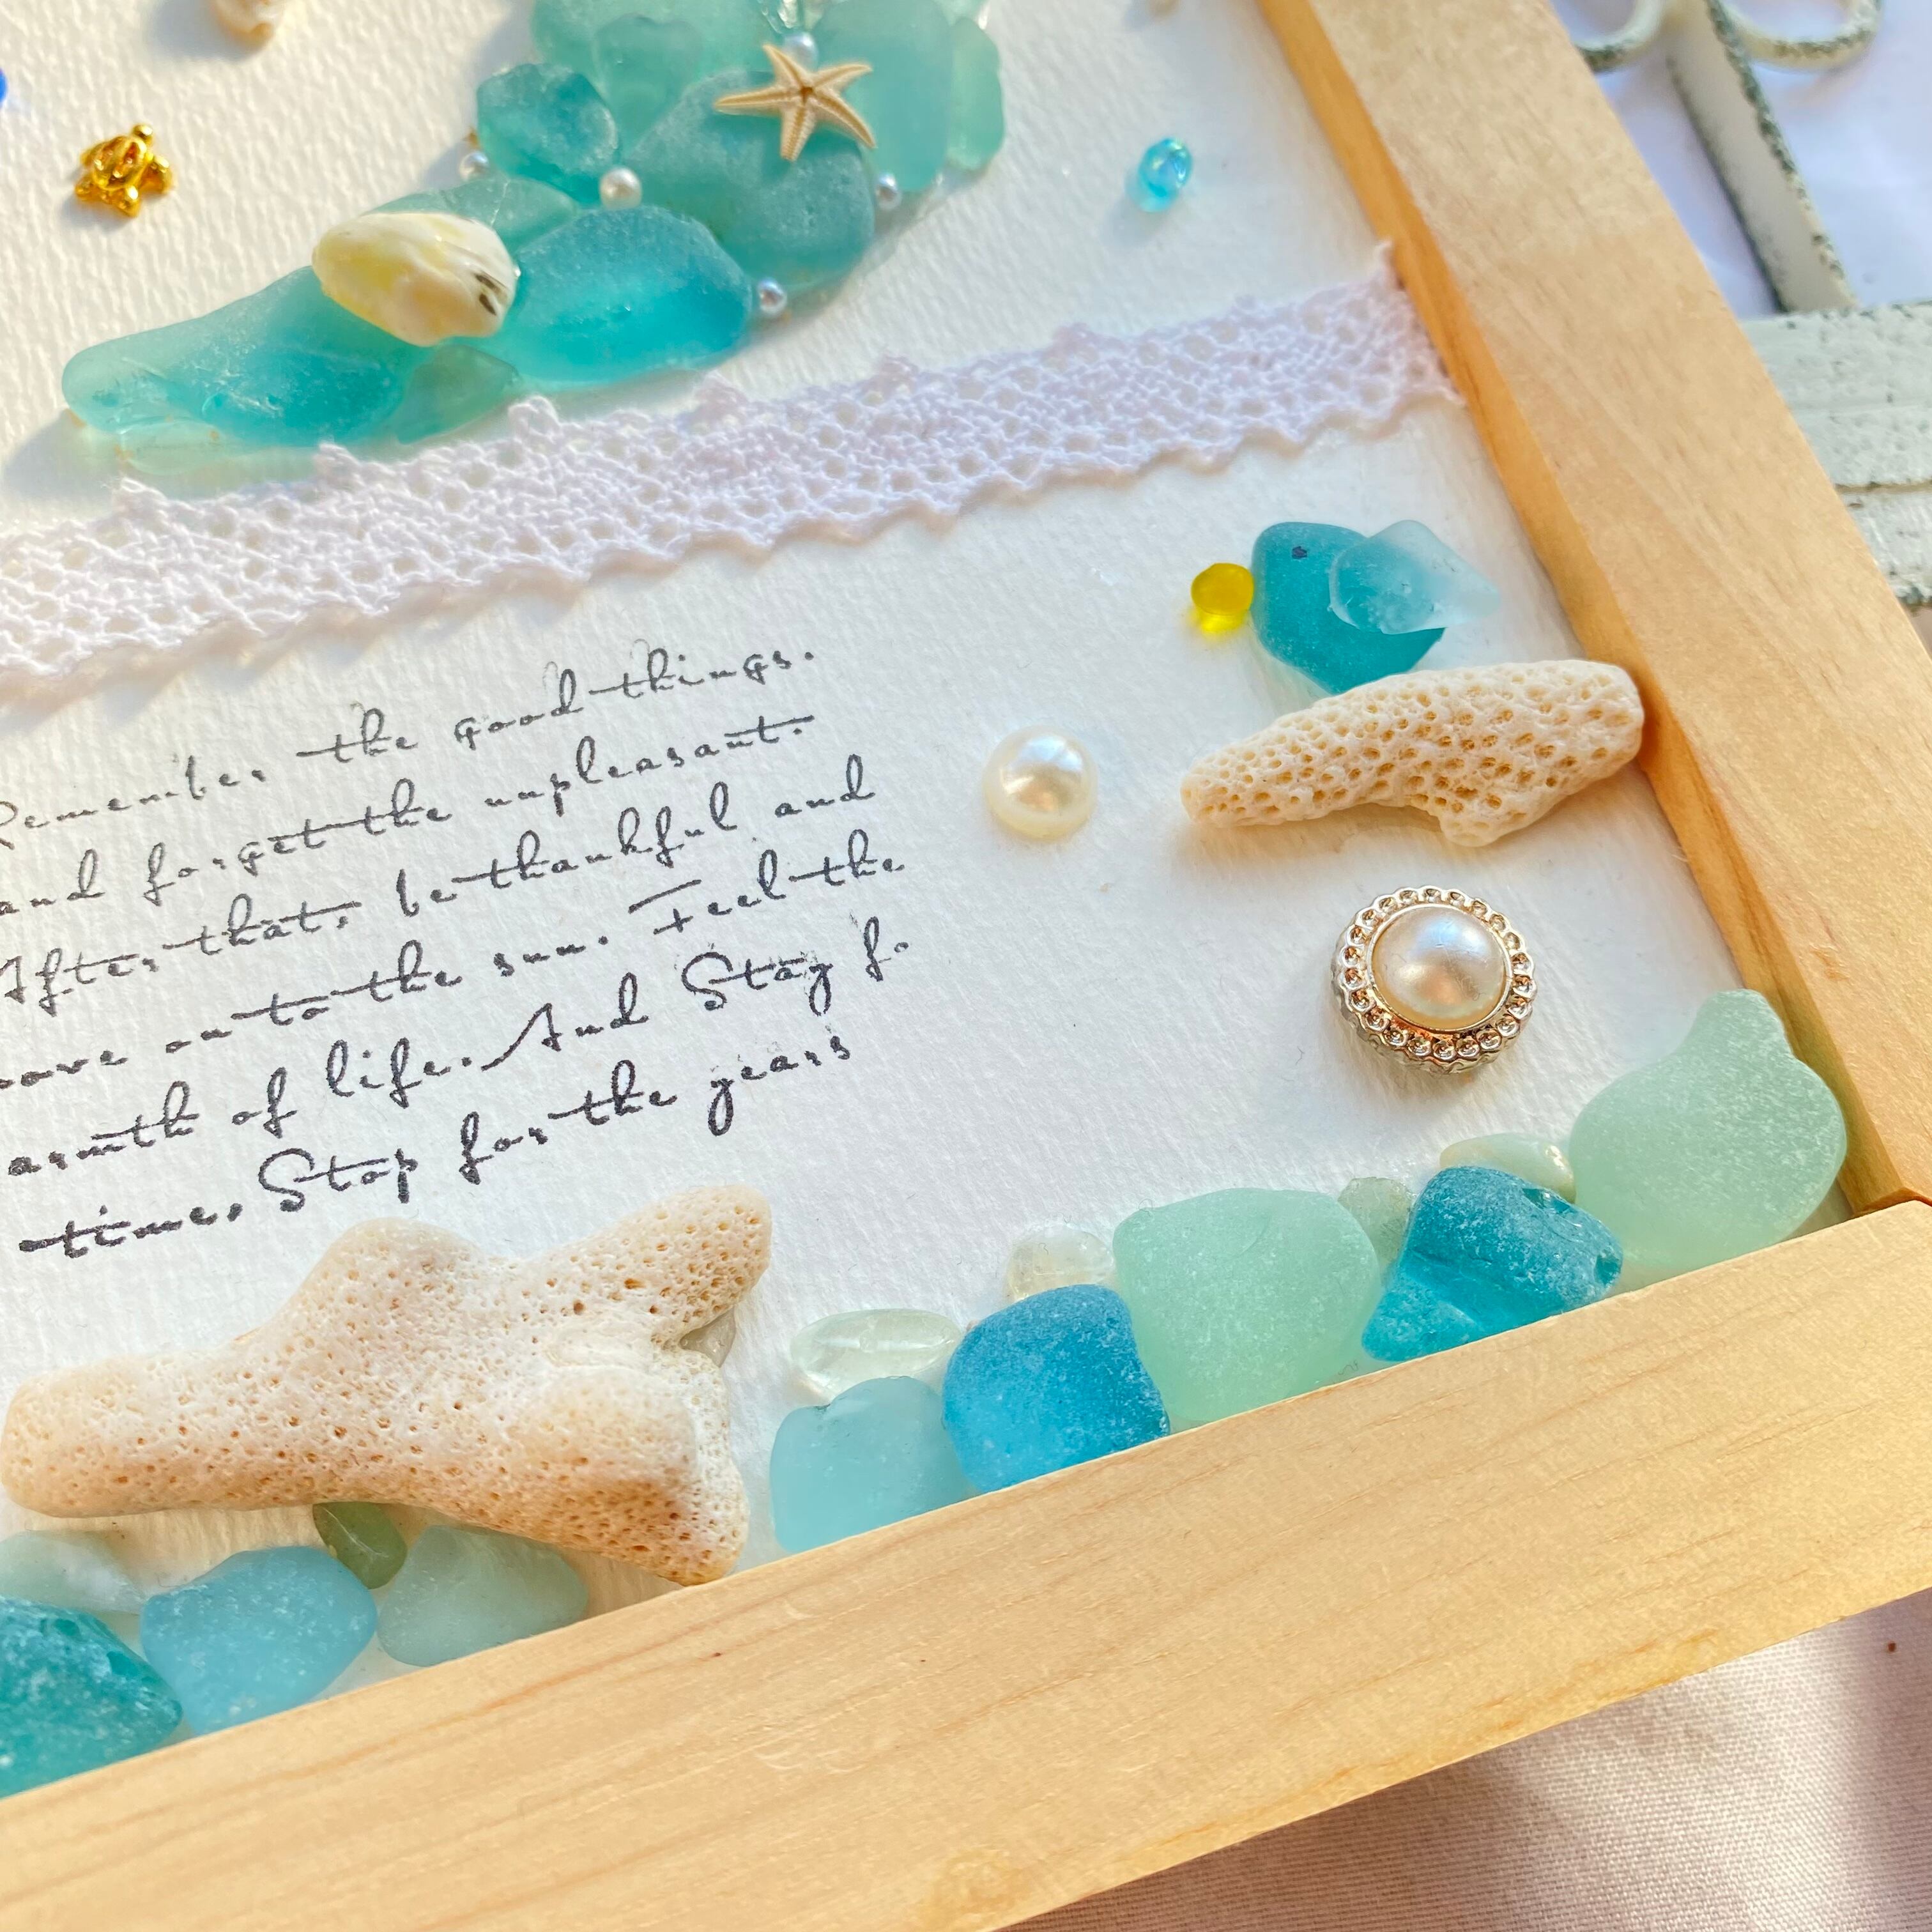 Remember the good things.
and forget the unpleasant.
After that, be thankful and
on to the sun. Feel the
of life. And Stay fo
time. Stop for the years